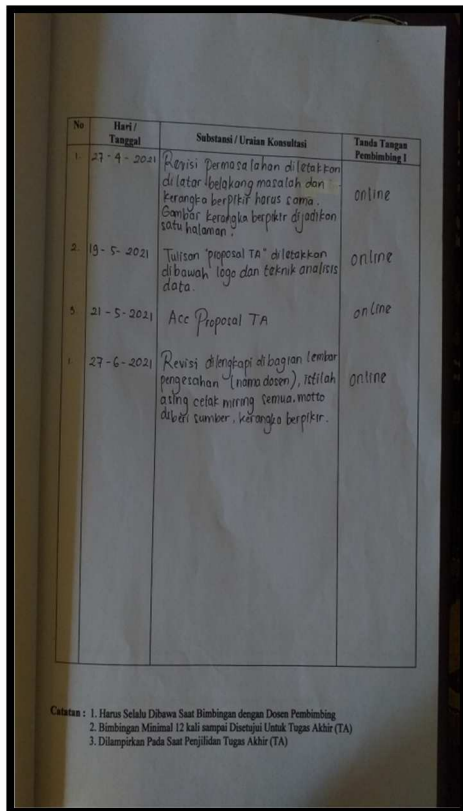 No Hari / Tanggal Substansi / Uraian Konsultasi Tanda Tangan Pembimbing I
1. 27-4-2021 Revisi permasalahan diletakkan
dilatar belakang masalah dan
kerangka berpikir harus sama.
Gambar kerangka berpikir dijadikan
satu halaman.
online
2. 19-5-2021 Tulisan "proposal TA" diletakkan
dibawah logo dan teknik analisis
data.
online
3 21-5-2021 Acc Proposal TA online
1 27-6-2021 Revisi dilengkapi dibagian lembar
pengesahan (nama dosen), istilah
asing cetak miring semua. motto
diberi sumber. kerangka berpikir.
online
Catatan : 1. Harus Selalu Dibawa Saat Bimbingan dengan Dosen Pembimbing
2. Bimbingan Minimal 12 kali sampai Disetujui Untuk Tugas Akhir (TA)
3. Dilampirkan Pada Saat Penjilidan Tugas Akhir (TA)